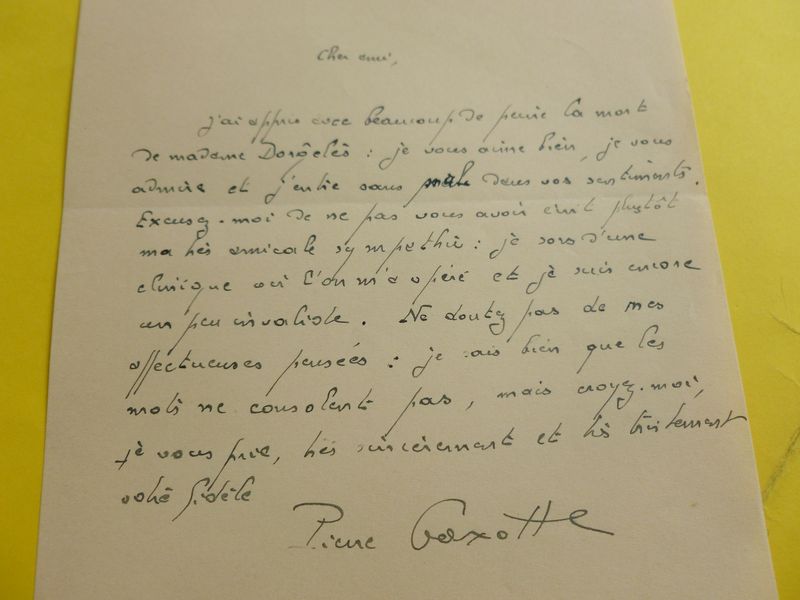 Cher ami,
j'ai appris avec beaucoup de peine la mort
de madame Dorgelès : je vous aime bien, je vous
admire et j'entre sans dans vos sentiments.
Excusez-moi de ne pas vous avoir écrit plustôt
ma très amicale sympathie : je sors d'une
clinique où l'on m'a opéré et je suis encore
un peu invalide. Ne doutez pas de mes
affectueuses pensées : je sais bien que les
mots ne consolent pas, mais croyez-moi,
je vous prie, très sincèrement et très tristement
votre fidèle
Pierre Gaxotte